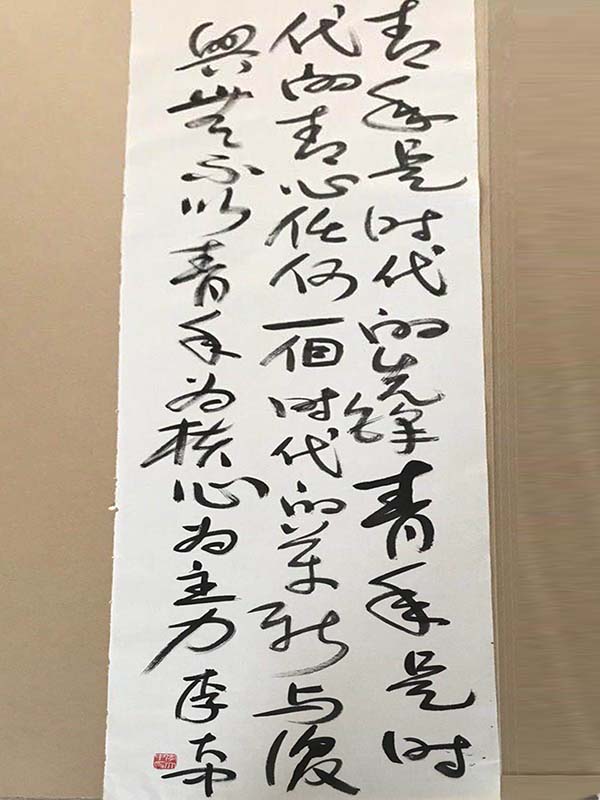 青年是时代的先锋青年是时
代的青心任何一個时代的革新与復
興無不以青年为核心为主力 李